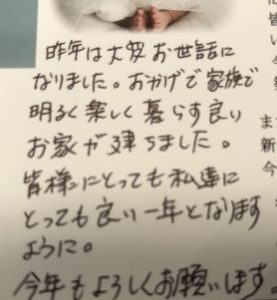 昨年は大変お世話に
なりました。おかげで家族で
明るく楽しく暮らす良い
お家が建ちました。
皆様にとっても私達に
とっても良い一年となります
ように。
今年もよろしくお願いします。